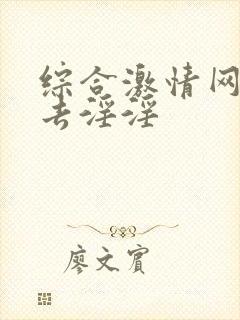 综合激情网
去淫淫
廖文宾